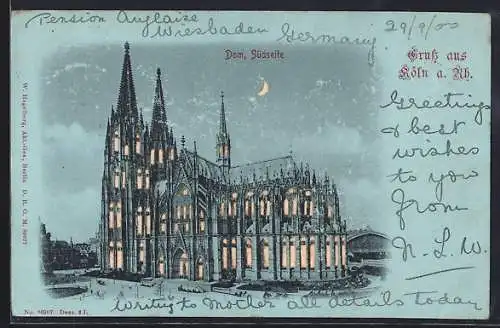 Pension Anglaise
Wiesbaden Germany
29/9/00
Dom, Südseite
Gruß aus
Köln a. Rh.
Greetings
& best
wishes
to you
from
N.L.W.
Writing to Mother all details today
W. Hagelberg, Akt.-Ges., Berlin D. R. G. M.